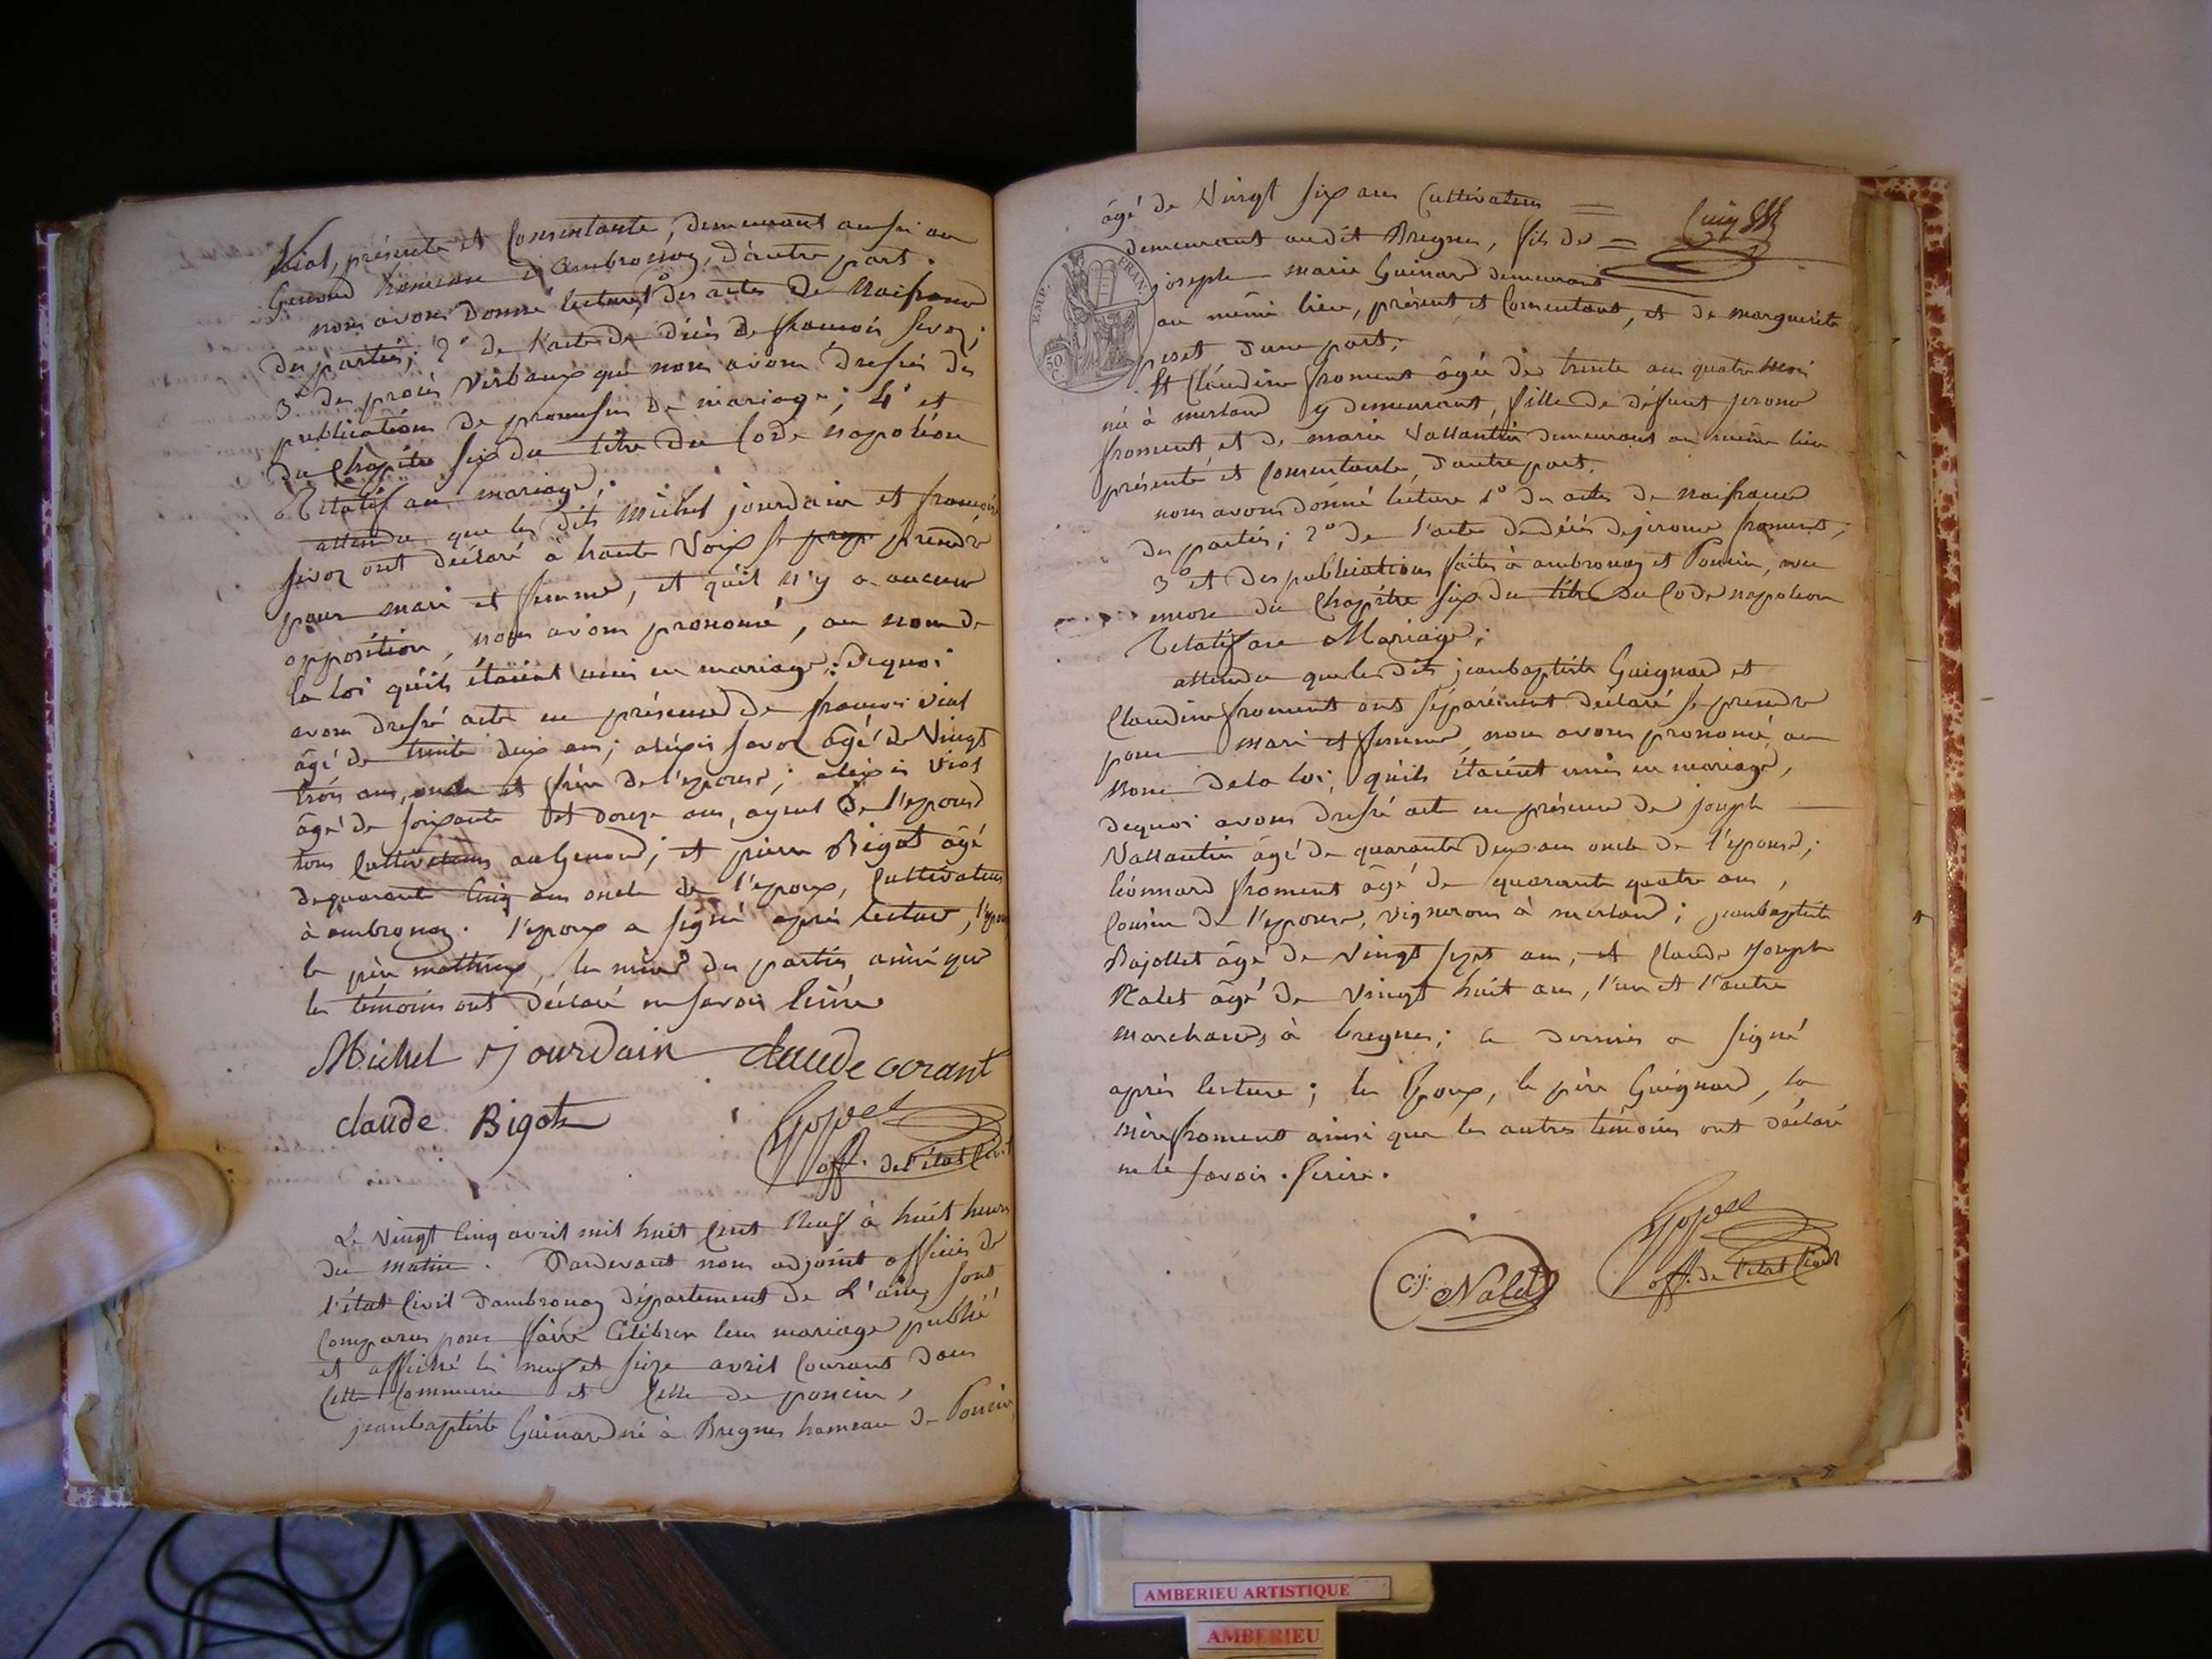 Vial, présente et Consentante, demeurant aussi au
Genoud hameau d'ambronay, d'autre part.
nous avons donné lecture 1° des actes de Naissance
des parties; 2° de l'acte de décès de françois savoz;
3° des procès verbaux que nous avons dressés des
publications de promesses de mariage; 4° et
du Chapitre six du titre du Code napoléon
Relatif au mariage;
attendu que les dits Michel jourdain et françoise
savoz ont déclaré à haute Voix se prendre
pour mari et femme, et qu'il n'y a aucune
opposition, nous avons prononcé, au nom de
la loi qu'ils étaient unis en mariage; dequoi
avons dressé acte en présence de françois vial
âgé de trente deux ans; alexis savoz âgé de Vingt
trois ans, oncle et frère de l'epouse; alexis Vial
âgé de soixante et douze ans, ayeul de l'epouse
tous Cultivateurs au Genoud; et pierre Bigot âgé
de quarante Cinq ans oncle de l'epoux, Cultivateur
à ambronay. l'epoux a signé après lecture,
le père les mères des parties ainsi que
les témoins ont déclaré ne savoir
Michel Jourdain claude
claude Bigot
off. de l'état Civil
Le Vingt Cinq avril mil huit Cent Neuf à huit heures
du matin. Pardevant nous adjoint officier de
l'état Civil d'ambronay département de L'ain, sont
Comparus pour faire Célébrer leur mariage publié
et affiché les neuf et seize avril Courant dans
Cette Commune et Celle de poncin,
jeanbaptiste Guinard né à Bregnes hameau de Poncin
âgé de Vingt six ans Cultivateur
demeurant audit Bregnes, fils de
joseph marie Guinard demeurant
au même lieu, présent et Consentant, et de marguerite
d'une part;
EMP. FRAN.
50 C.
Et Claudine froment âgée de trente ans quatre mois
née à merland y demeurant, fille de défunt jerome
froment, et de marie Vallantin demeurant au même lieu
présente et Consentante, d'autre part.
nous avons donné lecture 1° des actes de naissance
des parties; 2° de l'acte de décès de jerome froment;
3° et des publications faites à ambronay et Poncin,
encore du Chapitre six du titre du Code napoleon
Relatif au Mariage;
attendu que les dits jeanbaptiste Guignard et
Claudine froment ont séparément déclaré se prendre
pour mari et femme, nous avons prononcé au
Nom de la loi, qu'ils étaient unis en mariage,
dequoi avons dressé acte en présence de joseph
Vallantin âgé de quarante deux ans oncle de l'epouse;
léonnard froment âgé de quarante quatre ans,
Cousin de l'epouse, vignerons à merland; jeanbaptiste
Bajollet âgé de Vingt sept ans, et Claude Joseph
Nalet âgé de Vingt huit ans, l'un et l'autre
marchands à bregnes; ce dernier a signé
après lecture; les Epoux, le père Guignard, la
mère froment ainsi que les autres témoins ont déclaré
ne le savoir.
C.j. Nalet
off. de l'état Civil
AMBERIEU ARTISTIQUE
AMBERIEU